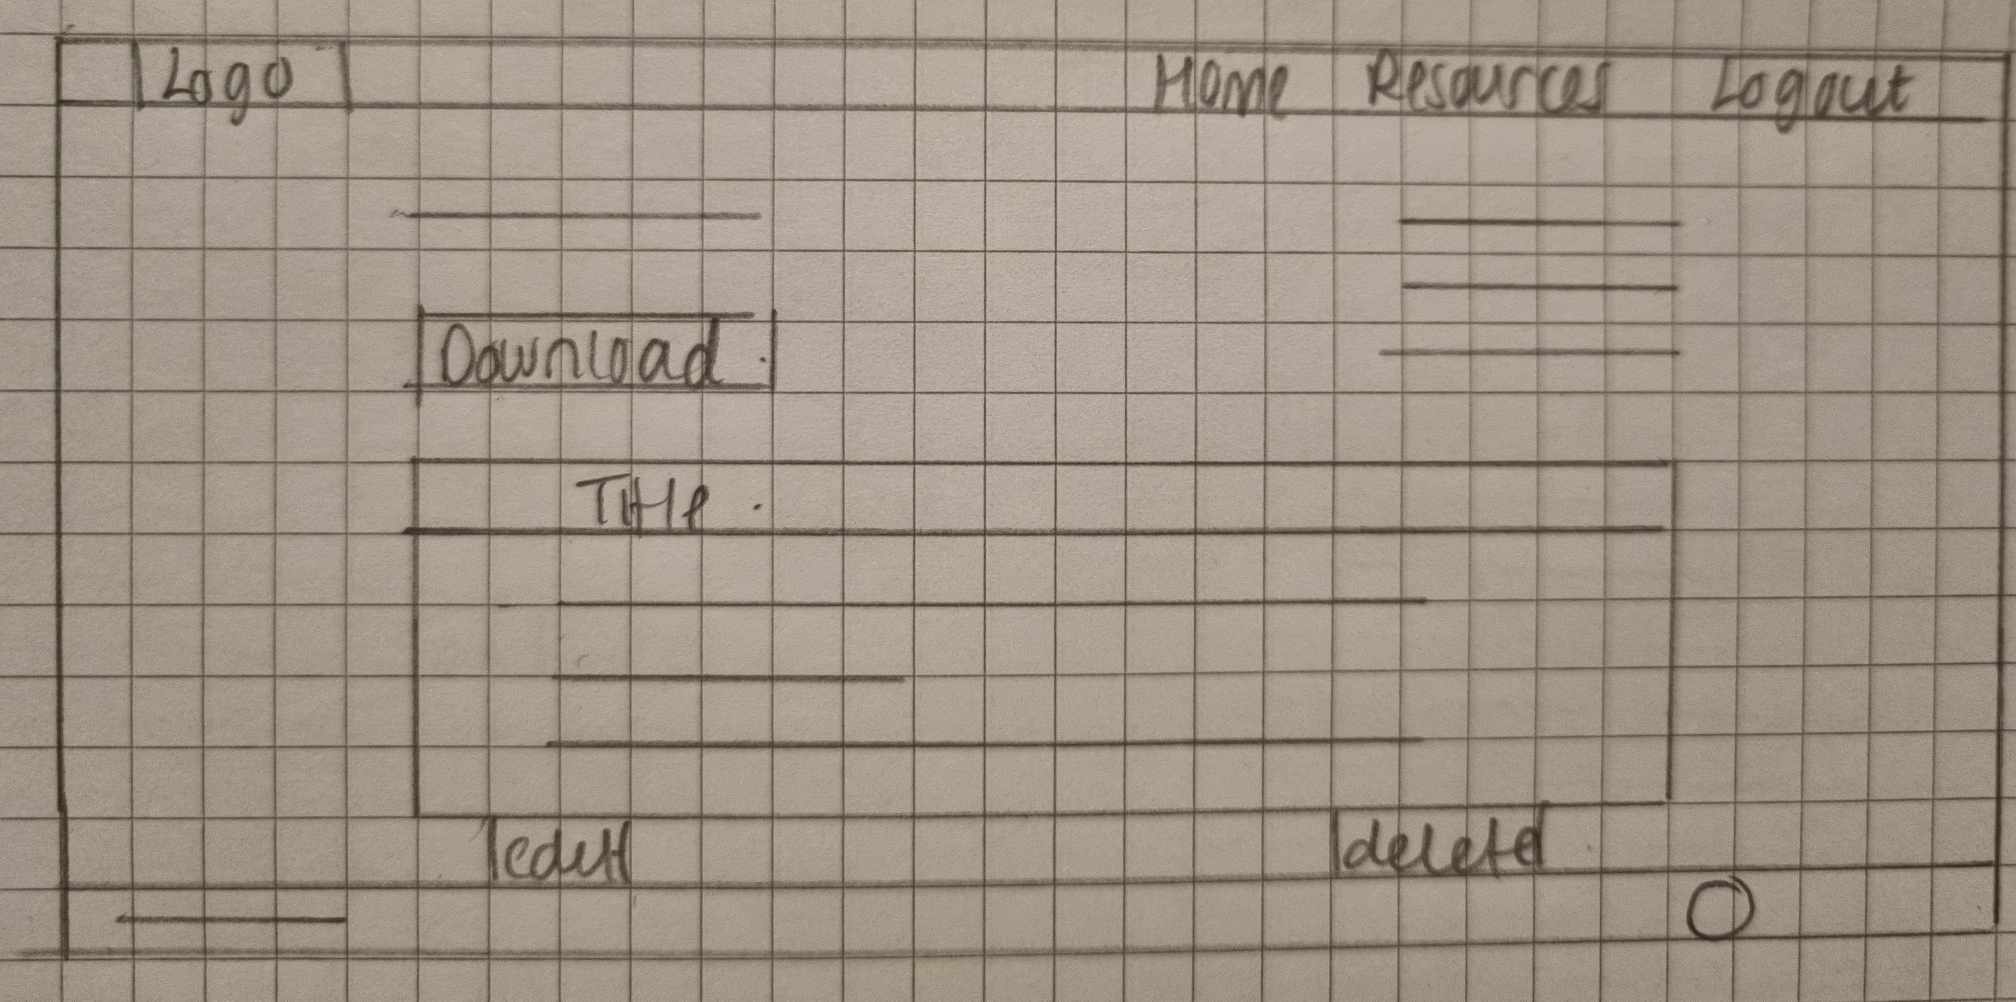 Logo Home Resources Logout
Download
Title
edit delete